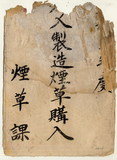 年度
入製造煙草購入
煙草課